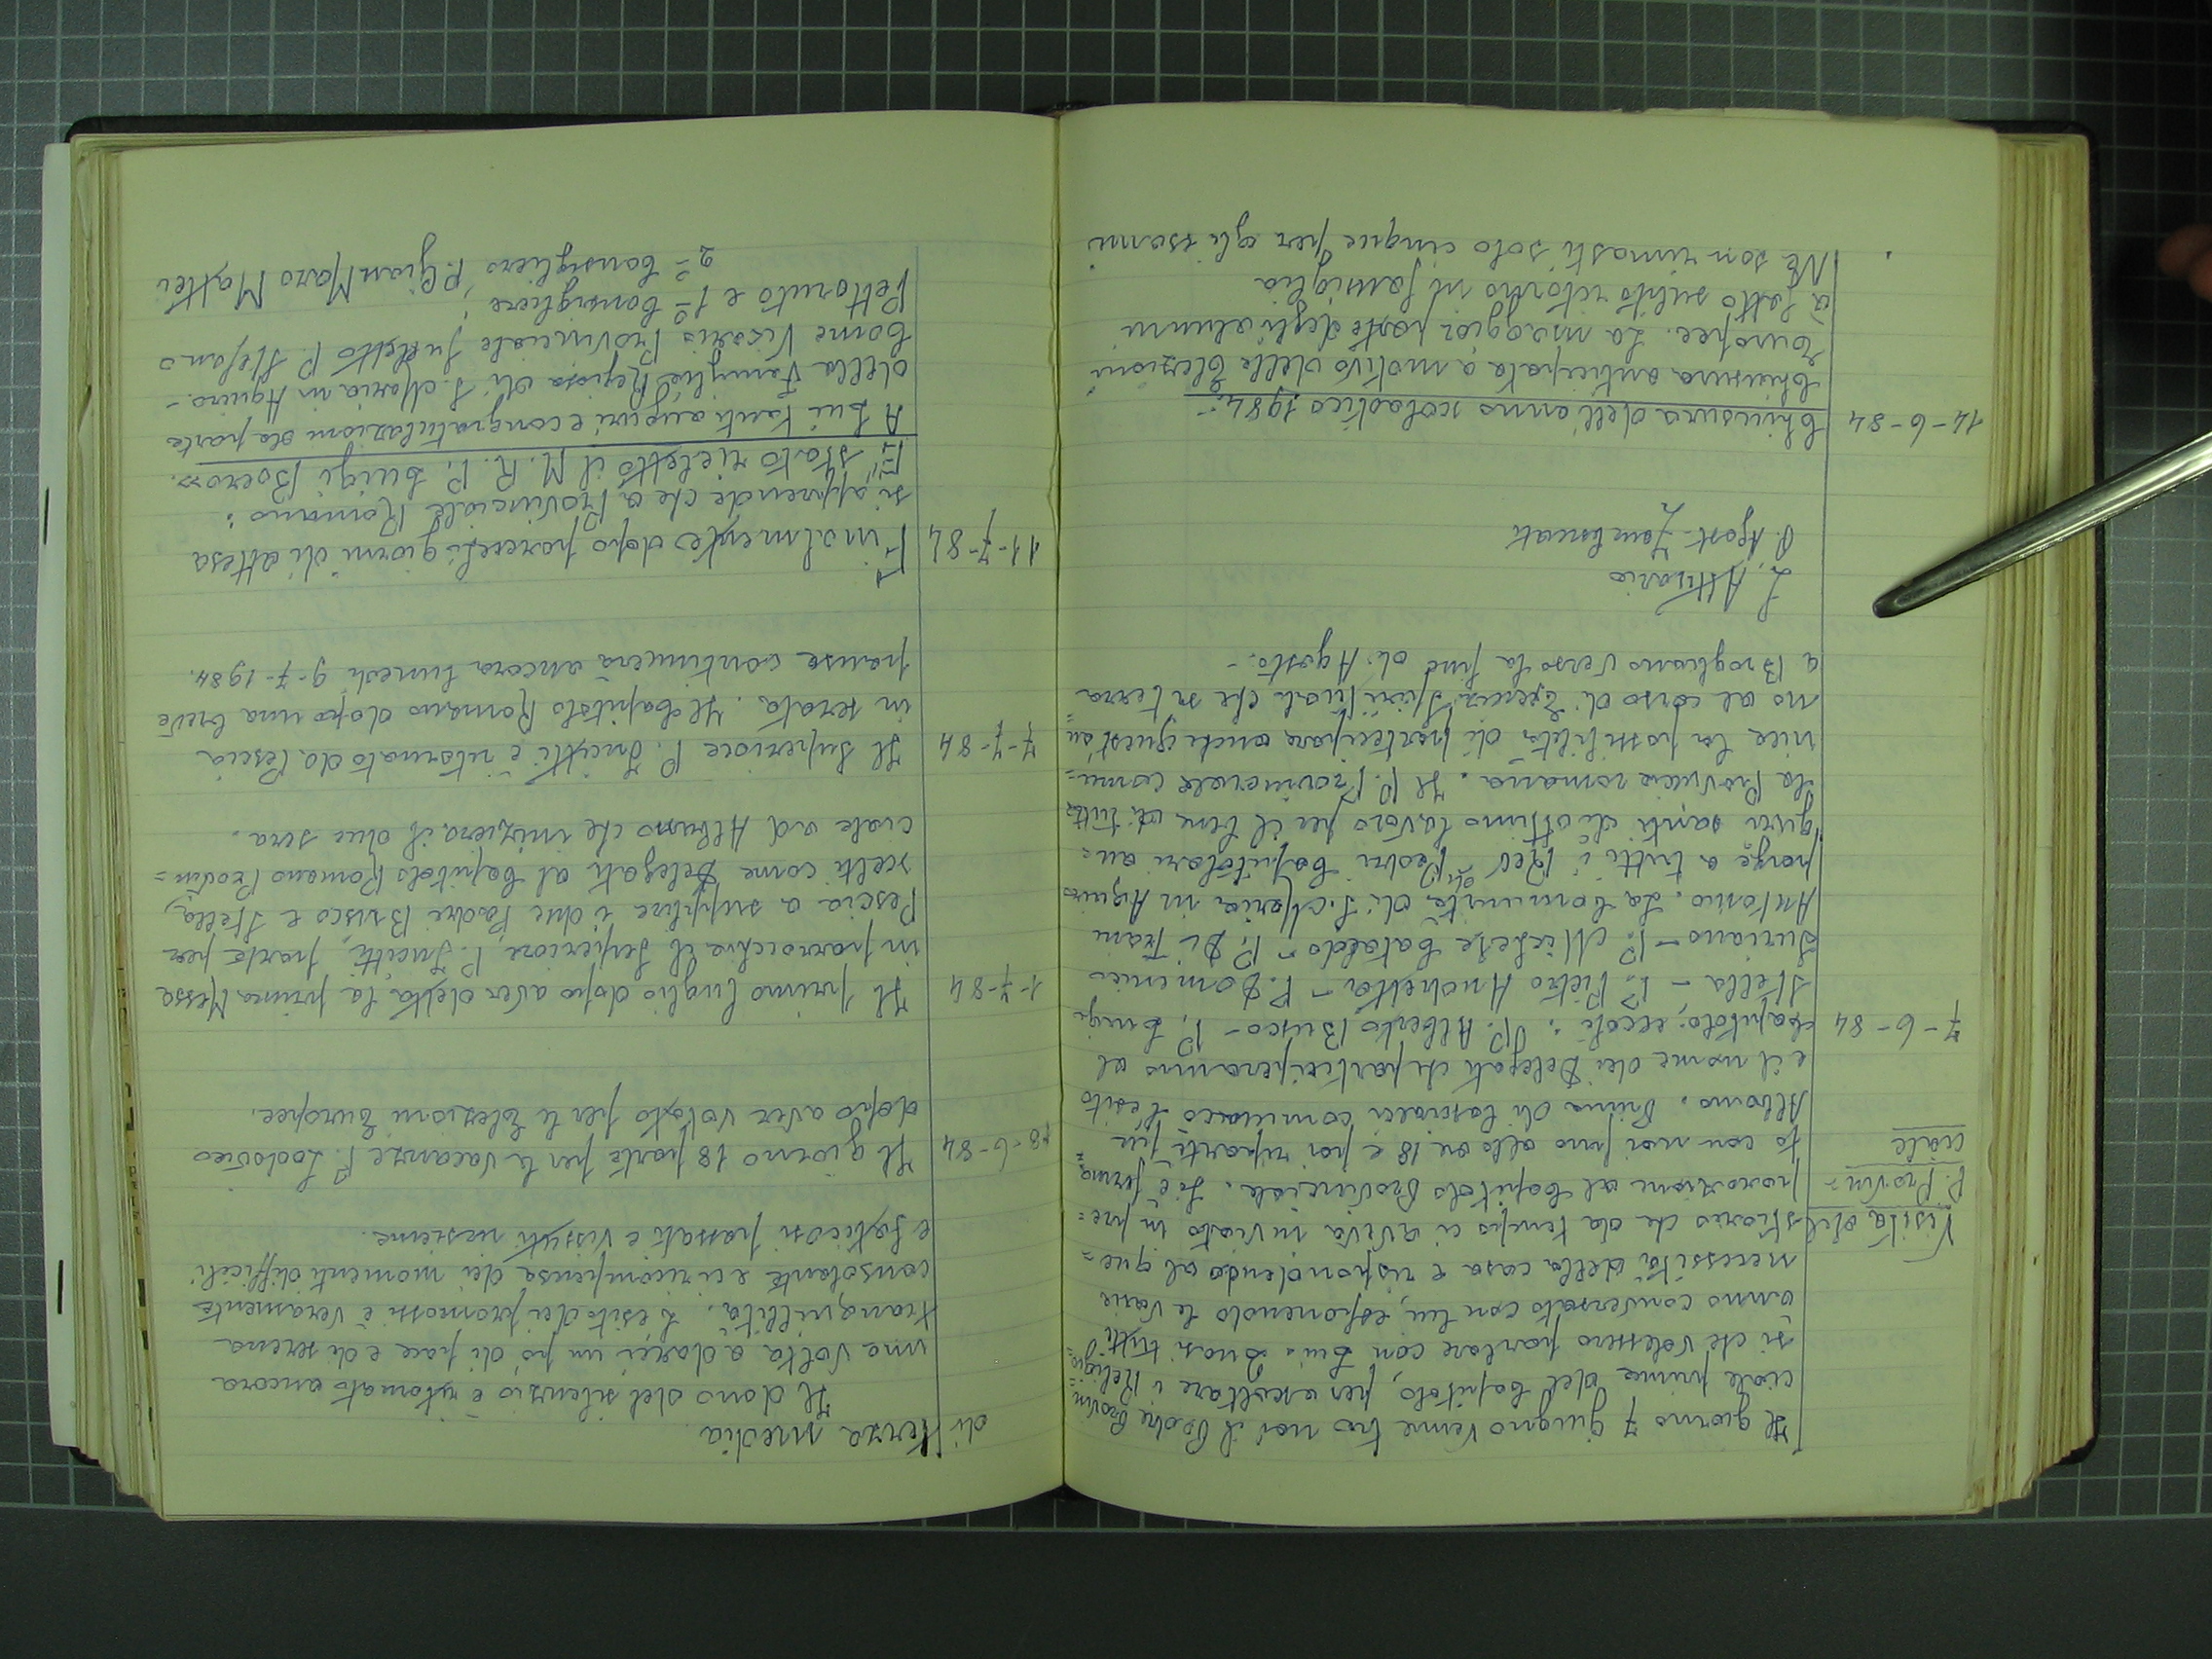 Il giorno 7 giugno venne tra noi il Padre Provin=
ciale prima del Capitolo, per ascoltare i Religio=
si che volessero parlare con Lui. Quasi tutti
ànno conversato con lui, esponendo le varie
necessità della casa e rispondendo al que=
Visita del
stionario che da tempo ci aveva inviato in pre=
P. Provin=
parazione al Capitolo Provinciale. Si è ferma=
ciale
to con noi fino alle ore 18 e poi ripartì per
Albano. Prima di lasciarci comunicò l'esito
e il nome dei Delegati che parteciperanno al
7-6-84
Capitolo; eccoli: P. Alberto Busco - P. Luigi
Stella - P. Pietro Andretta - P. Domenico
Suriano - P. Michele Cataldo - P. Di Trani
Antonio. La Comunità di S. Maria in Aquiro
porge a tutti i Rev.di Padri Capitolari au=
guri santi di ottimo lavoro per il bene di tutta
la Provincia romana. Il P. Provinciale comu=
nica la possibilità di partecipare anche quest'an=
no al corso di Esercizi Spirituali che si terrà
a Brogliano verso la fine di Agosto. -
L'Attuario
P. Agost. Zambonati
14-6-84
Chiusura dell'anno scolastico 1984:-
Chiusura anticipata a motivo delle Elezioni
Europee. La maggior parte degli alunni
à fatto subito ritorno in famiglia
Ne son rimasti solo cinque per gli esami
di terza media.
Il dono del silenzio è ritornato ancora
una volta a darci un pó di pace e di serena
tranquillità. L'esito dei promossi è veramente
consolante e ci ricompensa dei momenti difficili
e faticosi passati e vissuti insieme.
18-6-84
Il giorno 18 parte per le vacanze P. Lodovico
dopo aver votato per le Elezioni Europee.
1-7-84
Il primo luglio dopo aver detta la prima Messa
in parrocchia il Superiore, P. Incitti, parte per
Pescia a supplire i due Padri Busco e Stella,
scelti come Delegati al Capitolo Romano Provin=
ciale ad Albano che inizierà il due sera.
7-7-84
Il Superiore P. Incitti è ritornato da Pescia
in serata. Il Capitolo Romano dopo una breve
pausa continuerà ancora lunedì 9-7-1984.
11-7-84
Finalmente dopo parecchi giorni di attesa
si apprende che a Provinciale Romano:
E' stato rieletto il M. R. P. Luigi Boero.
A Lui tanti auguri e congratulazioni da parte
della Famiglia Religiosa di S. Maria in Aquiro.-
Come Vicario Provinciale fu eletto P. Stefano
Pettoruto e 1º Consigliere;
2º Consigliere P. Gian Marco Mattei